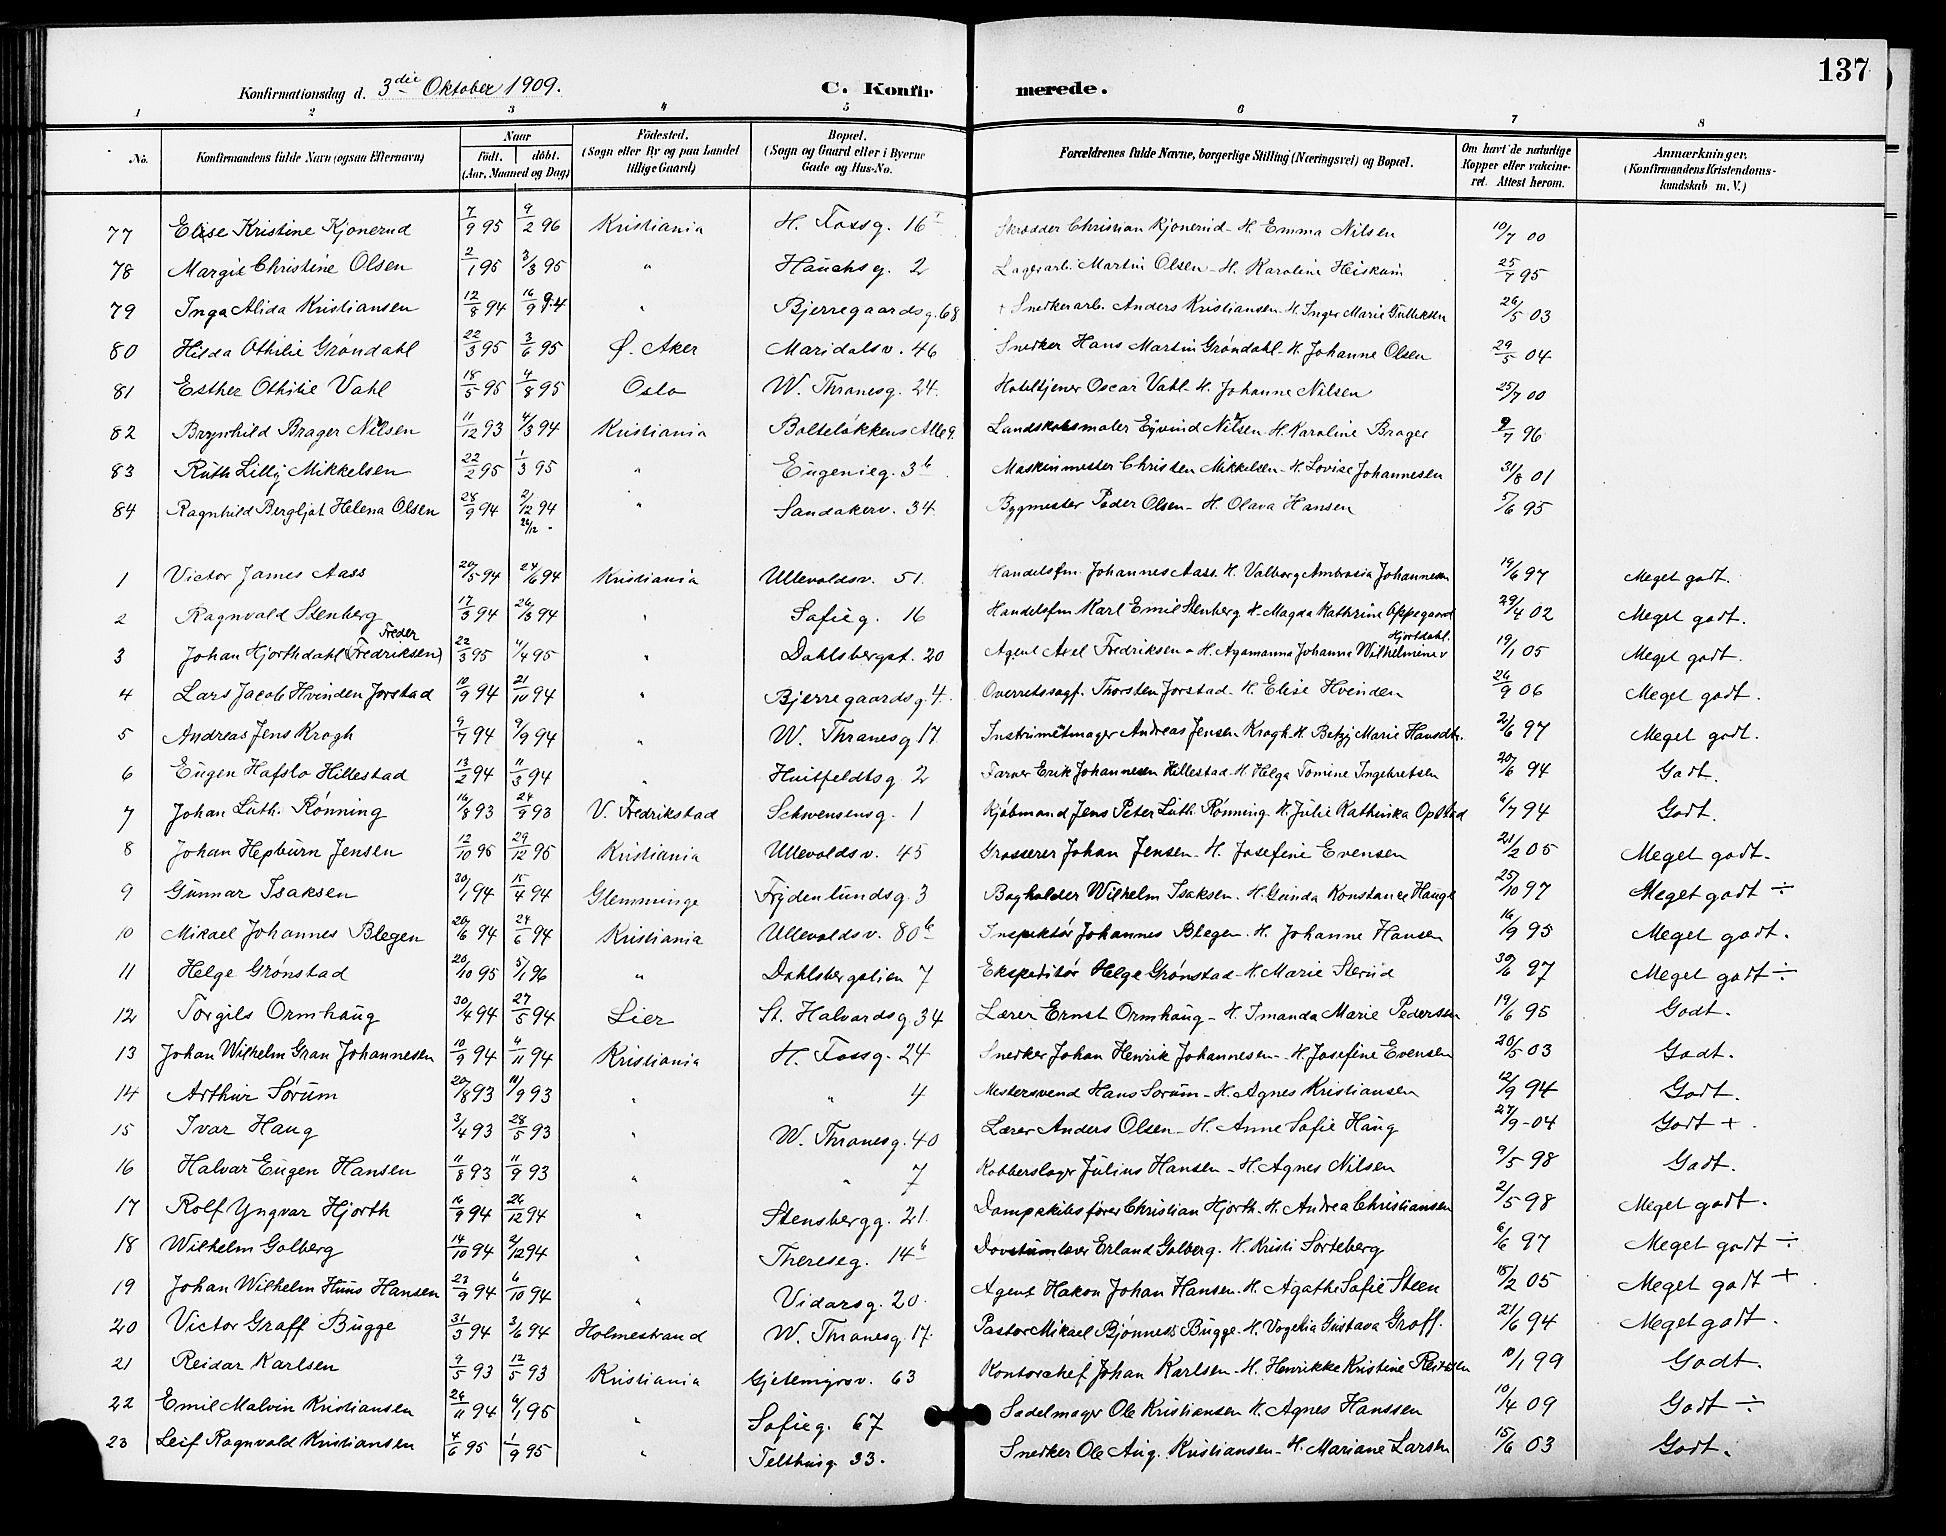 137
Konfirmationsdag d. 3die Oktober 1909. C. Konfirmerede.
1 2 3 4 5 6 7 8
No. Konfirmandens fulde Navn (ogsaa Efternavn) Naar født. døbt. (Aar, Maaned og Dag) Fødested. (Sogn eller By og paa Landet tillige Gaard) Bopæl. (Sogn og Gaard eller i Byerne Gade og Hus-No. Forældrenes fulde Navne, borgerlige Stilling (Næringsvei) og Bopæl. Om havt de naturlige Kopper eller vakcineret. Attest herom. Anmærkninger. (Konfirmandens Kristendomskundskab m. V.)
77 Elise Kristine Kjonerud 7/9 95 9/2 96 Kristiania H. Fossg. 16 Skrædder Christian Kjonerud - H. Emma Nilsen 10/7 00
78 Margit Christine Olsen 2/1 95 3/3 95 " Hauchsg. 2 Lagerarb. Martin Olsen - H. Karoline Heiskum 25/7 95
79 Inga Alida Kristiansen 12/8 94 16/9 94 " Bjerregaardsg. 68 + Snedkerarb. Anders Kristiansen - H. Inger Marie Gulliksen 26/5 03
80 Hilda Othilie Grøndahl 22/3 95 3/6 95 Ø. Aker Maridalsv. 46 Snedker Hans Martin Grøndahl - H. Johanne Olsen 29/5 04
81 Esther Othilie Vahl 18/5 95 4/8 95 Oslo W. Thranesg. 24. Hoteltjener Oscar Vahl - H. Johanne Nilsen 25/7 00
82 Brynhild Brager Nilsen 11/12 93 4/3 94 Kristiania Bolteløkkens Alle 9. Landskabsmaler Ejvind Nilsen - H. Karoline Brager 9/7 96
83 Ruth Lilly Mikkelsen 22/2 95 1/3 95 " Eugenieg. 3b Maskinmester Christen Mikkelsen - H. Lovise Johannesen 31/8 01
84 Ragnhild Bergljot Helena Olsen 28/9 94 2/12 94 " Sandakerv. 34 Bygmester Peder Olsen - H. Olava Hansen 5/6 95
26/12 -
1 Victor James Aass 20/5 94 24/6 94 Kristiania Ullevoldsv. 51. Handelsfm. Johannes Aass. H. Valborg Ambrosia Johannesen 19/6 97 Meget godt.
2 Ragnvald Stenberg 17/3 94 26/3 94 " Sofieg. 16 Handelsfm Karl Emil Stenberg H. Magda Kathrine Oppegaard 29/4 02 Meget godt.
Freder Hjortdahl.
3 Johan Hjorthdahl (Fredriksen) 22/3 95 4/4 95 " Dahlsbergst. 20 Agent Axel Fredriksen - H. Agamanna Johanna Wilhelmine 19/1 05 Meget godt.
4 Lars Jacob Hvinden Jorstad 10/9 94 21/10 94 " Bjerregaardsg. 4. Overretssagf. Thorsten Jorstad - H. Elise Hvinden 26/9 06 Meget godt.
5 Andreas Jens Krogh 9/7 94 9/9 94 " W. Thranesg 17 Instrumetmager Andreas Jensen Krogh - H. Betzj Marie Hansdtr. 2/6 97 Meget godt.
6 Eugen Hafslo Hillestad 13/2 94 11/3 94 " Huitfeldtsg. 2 Farver Erik Johannesen Hillestad - H. Helga Tomine Ingebretsen 20/6 94 Godt.
7 Johan Luth. Rønning 16/8 93 24/9 93 V. Fredrikstad Schwensensg. 1 Kjøbmand Jens Peter Luth. Rønning. H. Julie Kathinka Opstad 6/7 94 Godt.
8 Johan Hepburn Jensen 12/10 95 29/12 95 Kristiania Ullevoldsv. 45 Grosserer Johan Jensen - H. Josefine Evensen 21/2 05 Meget godt.
9 Gunnar Isaksen 30/1 94 15/4 94 Glemminge Frydenlundsg. 3 Bogholder Wilhelm Isaksen. H. Gunda Konstance Hauge 25/10 97 Meget godt ÷
10 Mikael Johannes Blegen 20/6 94 24/6 94 Kristiania Ullevoldsv. 80b Inspektør Johannes Blegen. H. Johanne Hansen 16/9 95 Meget godt.
11 Helge Grønstad 20/10 95 5/1 96 " Dahlsbergstien 7 Ekspeditør Helge Grønstad - H. Marie Sterud 30/6 97 Meget godt ÷
12 Torgils Ormhaug 30/4 94 27/5 94 Lier St. Halvardsg 34 Lærer Ernst Ormhaug - H. Imanda Marie Pedersen 19/6 95 Godt.
13 Johan Wilhelm Gran Johannesen 10/9 94 4/11 94 Kristiania H. Fossg. 24 Snedker Johan Henrik Johannesen - H. Josefine Evensen 20/5 03 Godt.
14 Arthur Sørum 20/8 93 10/9 93 " " 4 Mestersvend Hans Sorum - H. Agnes Kristiansen 12/9 94 Godt.
15 Ivar Haug 3/4 93 28/5 93 " W. Thranesg. 40 Lærer Anders Olsen - H. Anne Sofie Haug 27/9 - 04 Godt +.
16 Halvar Eugen Hansen 11/8 93 11/9 93 " " 7 Kobberslagr Julius Hansen - H. Agnes Nilsen 9/5 98 Godt.
17 Rolf Yngvar Hjorth 16/9 94 26/12 94 " Stensbergg. 21. Dampskibsfører Christian Hjorth - H. Andrea Christiansen 2/5 98 Meget godt.
18 Wilhelm Golberg 14/10 94 2/12 94 " Thereseg. 14b Døvstumlærer Erland Golberg. H. Kristi Sorteberg 6/6 97 Meget godt ÷
19 Johan Wilhelm Huus Hansen 23/9 94 6/10 94 " Vidarsg. 20. Agent Hakon Johan Hansen - H. Agathe Sofie Steen 15/2 05 Meget godt +.
20 Victor Graff Bugge 31/3 94 3/6 94 Holmestrand W. Thranesg. 17. Pastor Mikael Bjønness Bugge - H. Vogelia Gustava Graff. 21/6 94 Meget godt.
21 Reidar Karlsen 9/5 93 12/5 93 Kristiania Gjetemyrsv. 63 Kontorchef Johan Karlsen - H. Henrikke Kristine 10/1 99 Godt.
22 Emil Malvin Kristiansen 26/11 94 6/1 95 " Sofieg. 67 Sadelmager Ole Kristiansen H. Agnes Hanssen 10/4 09 Godt ÷
23 Leif Ragnvald Kristiansen 4/6 95 1/9 95 " Telthusg. 33. Snedker Ole Aug. Kristiansen - H. Mariane Larsen 15/6 03 Godt.